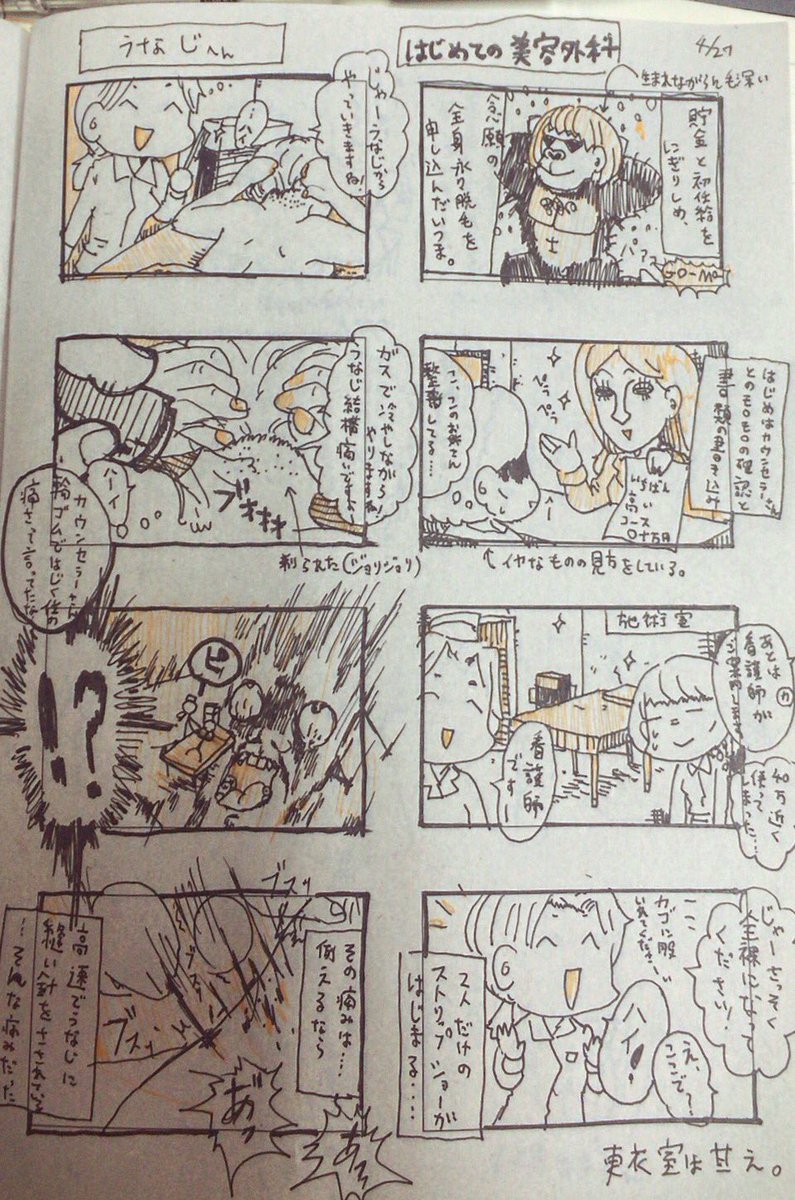 4/27
はじめての美容外科
生まれながらに毛深い
貯金と初任給を
にぎりしめ、
念願の
全身永久脱毛を
申し込んだいつま。
はじめはカウンセラーさん
とのモロモロの確認と
書類の書き込み
ぺらっ
ぺらっ
いちばん
高い
コース
〇十万円
へー
整形してる…
↑イヤなものの見方をしている。
施術室
あとは
看護師が
ご案内します
40万近く
使って
しまった…
看護師
ですー
じゃーさっそく
全裸になって
ください!
ここに
カゴに服
いれてくださーい
え、
ここで?
ハイ!
2人だけの
ストリップショーが
はじまる….
更衣室は甘え。
うなじへん
じゃーうなじから
やっていきますね!
ハイ
ガスで冷やしながら
やりますね!
うなじ結構痛いですよ
ハーイ
ブオオオ
剃られた(ジョリジョリ)
カウンセラーさん
輪ゴムではじく位の
痛さって言ってたな
ピ
!?
その痛みは…
例えるなら
ブスッ
ブスッ
ブスッ
高速でうなじに
縫い針をさされている
…そんな痛みだった
あ゛っ
あ゛っ